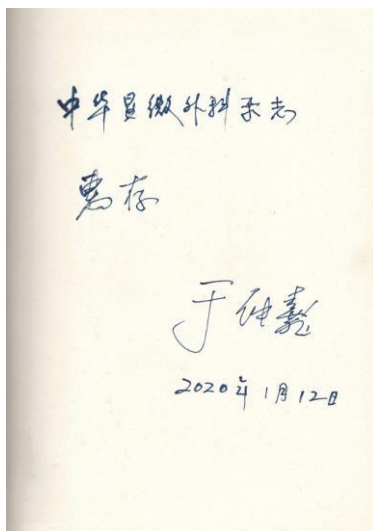 中华显微外科杂志
惠存
于
2020年1月12日